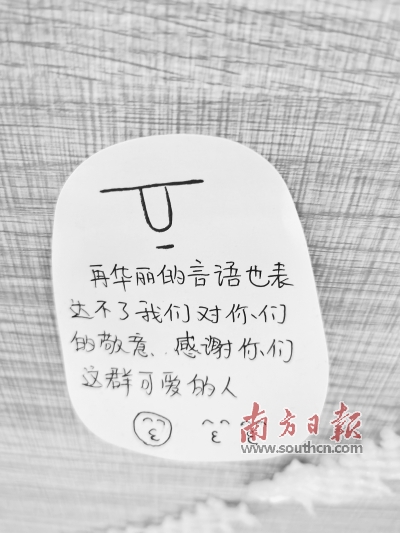 再华丽的言语也表
达不了我们对你们
的敬意、感谢你们
这群可爱的人
南方日报
www.southcn.com